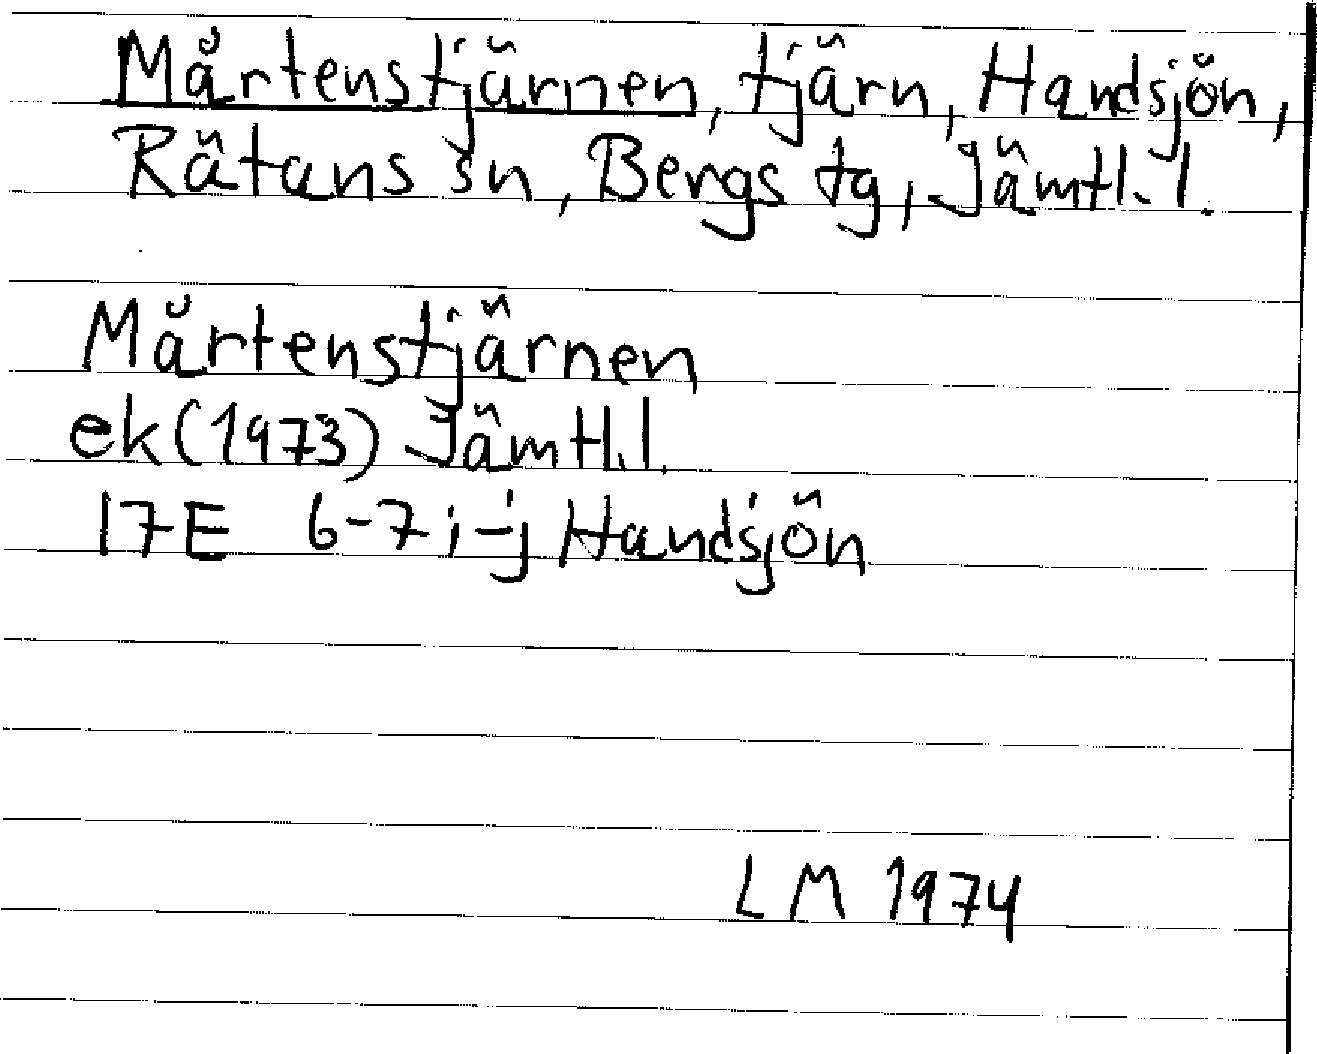 Mårtenstjärnen, tjärn, Handsjön,
Rätans sn, Bergs tg, Jämtl. l.
Mårtenstjärnen
ek (1973) Jämtl. l.
17E 6-7 i-j Handsjön
LM 1974